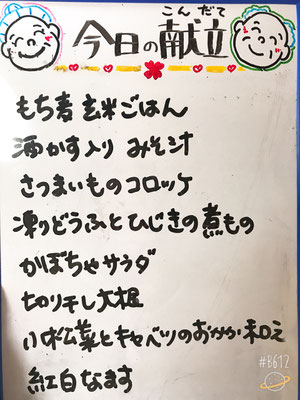 こんだて
今日の献立
もち麦玄米ごはん
酒かす入り みそ汁
さつまいものコロッケ
凍りどうふとひじきの煮もの
かぼちゃサラダ
切り干し大根
小松菜とキャベツのおかか和え
紅白なます
#B612